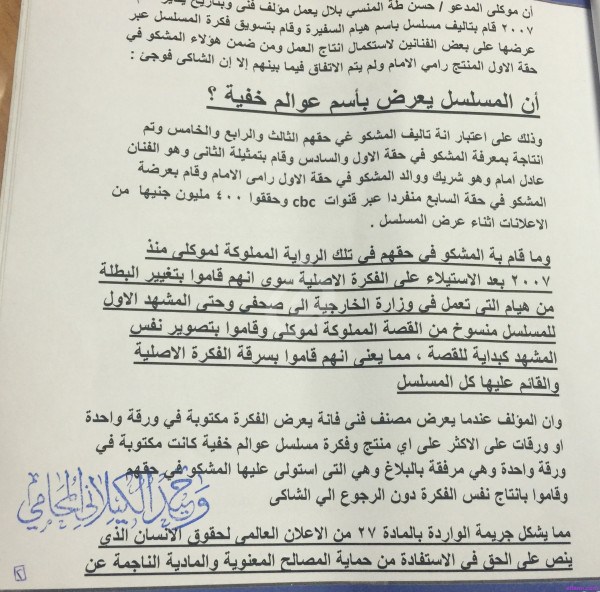 أن موكلى المدعو / حسن طة المنسي بلال يعمل مؤلف فنى وبتاريخ
٢٠٠٧ قام بتاليف مسلسل باسم هيام السفيرة وقام بتسويق فكرة المسلسل عبر
عرضها على بعض الفنانين لاستكمال انتاج العمل ومن ضمن هؤلاء المشكو في
حقة الاول المنتج رامي الامام ولم يتم الاتفاق فيما بينهم إلا إن الشاكى فوجئ :
أن المسلسل يعرض بأسم عوالم خفية ؟
وذلك على اعتبار انة تاليف المشكو غي حقهم الثالث والرابع والخامس وتم
انتاجة بمعرفة المشكو في حقة الاول والسادس وقام بتمثيلة الثانى وهو الفنان
عادل امام وهو شريك ووالد المشكو في حقة الاول رامى الامام وقام بعرضة
المشكو في حقة السابع منفردا عبر قنوات cbc وحققوا ٤٠٠ مليون جنيها من
الاعلانات اثناء عرض المسلسل .
وما قام بة المشكو في حقهم في تلك الرواية المملوكة لموكلى منذ
٢٠٠٧ بعد الاستيلاء على الفكرة الاصلية سوى انهم قاموا بتغيير البطلة
من هيام التى تعمل في وزارة الخارجية الى صحفي وحتى المشهد الاول
للمسلسل منسوخ من القصة المملوكة لموكلى وقاموا بتصوير نفس
المشهد كبداية للقصة ، مما يعنى انهم قاموا بسرقة الفكرة الاصلية
والقائم عليها كل المسلسل
وان المؤلف عندما يعرض مصنف فنى فانة يعرض الفكرة مكتوبة في ورقة واحدة
او ورقات على الاكثر على اي منتج وفكرة مسلسل عوالم خفية كانت مكتوبة في
ورقة واحدة وهي مرفقة بالبلاغ وهي التى استولى عليها المشكو في حقهم
وقاموا بانتاج نفس الفكرة دون الرجوع الي الشاكى
وحيد الكيلاني المحامي
مما يشكل جريمة الواردة بالمادة ٢٧ من الاعلان العالمي لحقوق الانسان الذي
ينص على الحق في الاستفادة من حماية المصالح المعنوية والمادية الناجمة عن
٢